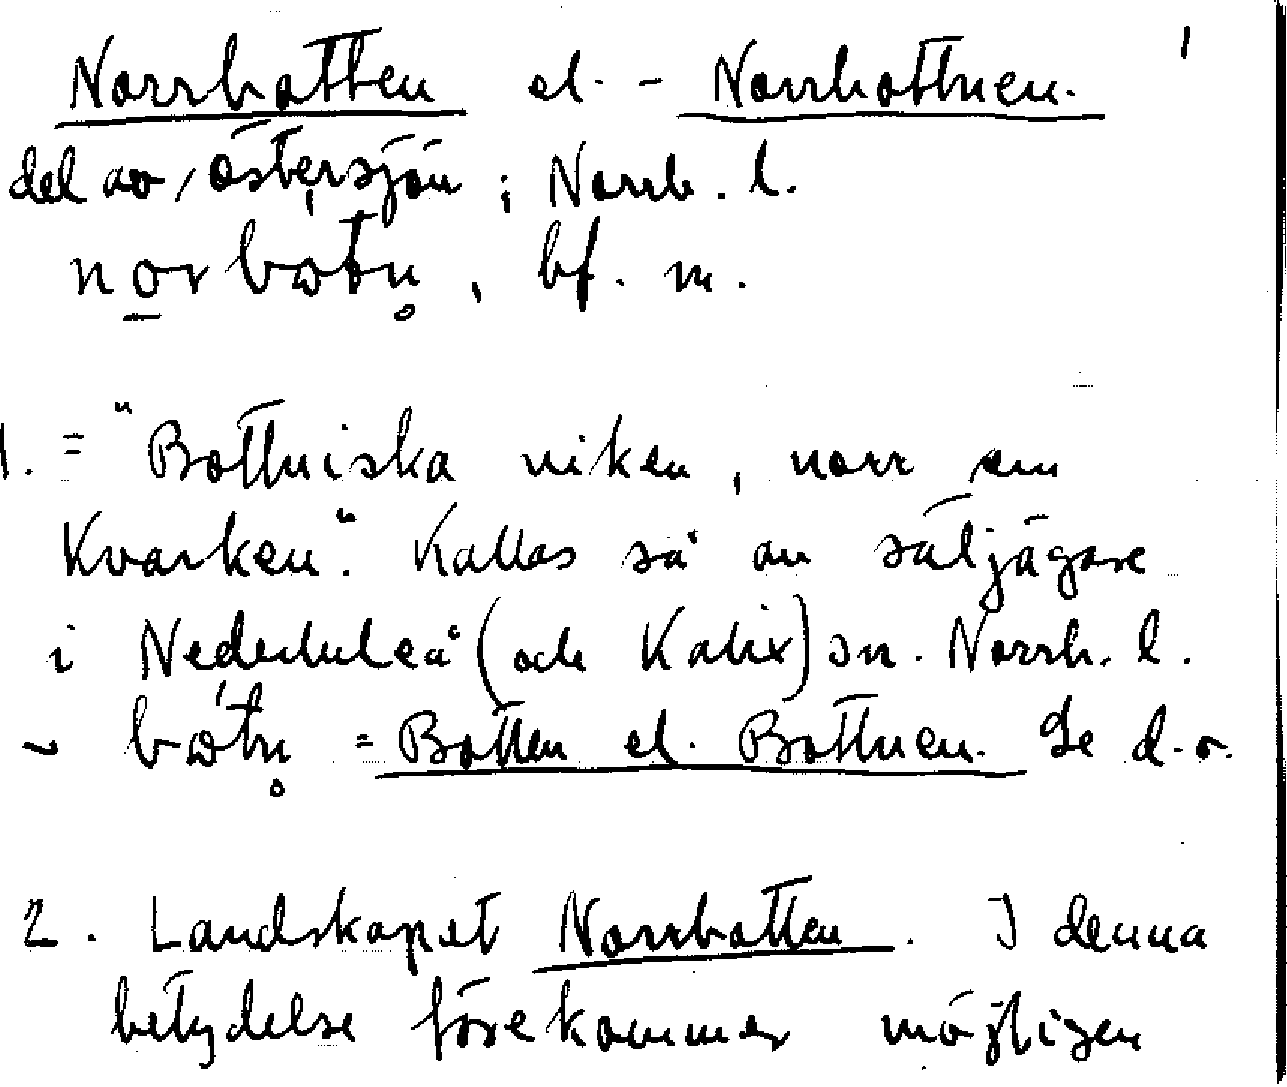 Norrbotten el. - Norrbottnen. 1
del av, Östersjön i Norrb. l.
norbɷtn̥, bf. m.
1. = "Bottniska viken, norr om
Kvarken". Kallas så av säljägare
i Nederluleå (och Kalix) sn. Norrb. l.
~ bɷtn̥ = Botten el. Bottnen. Se d.o.
2. Landskapet Norrbotten. I denna
betydelse förekommer möjligen